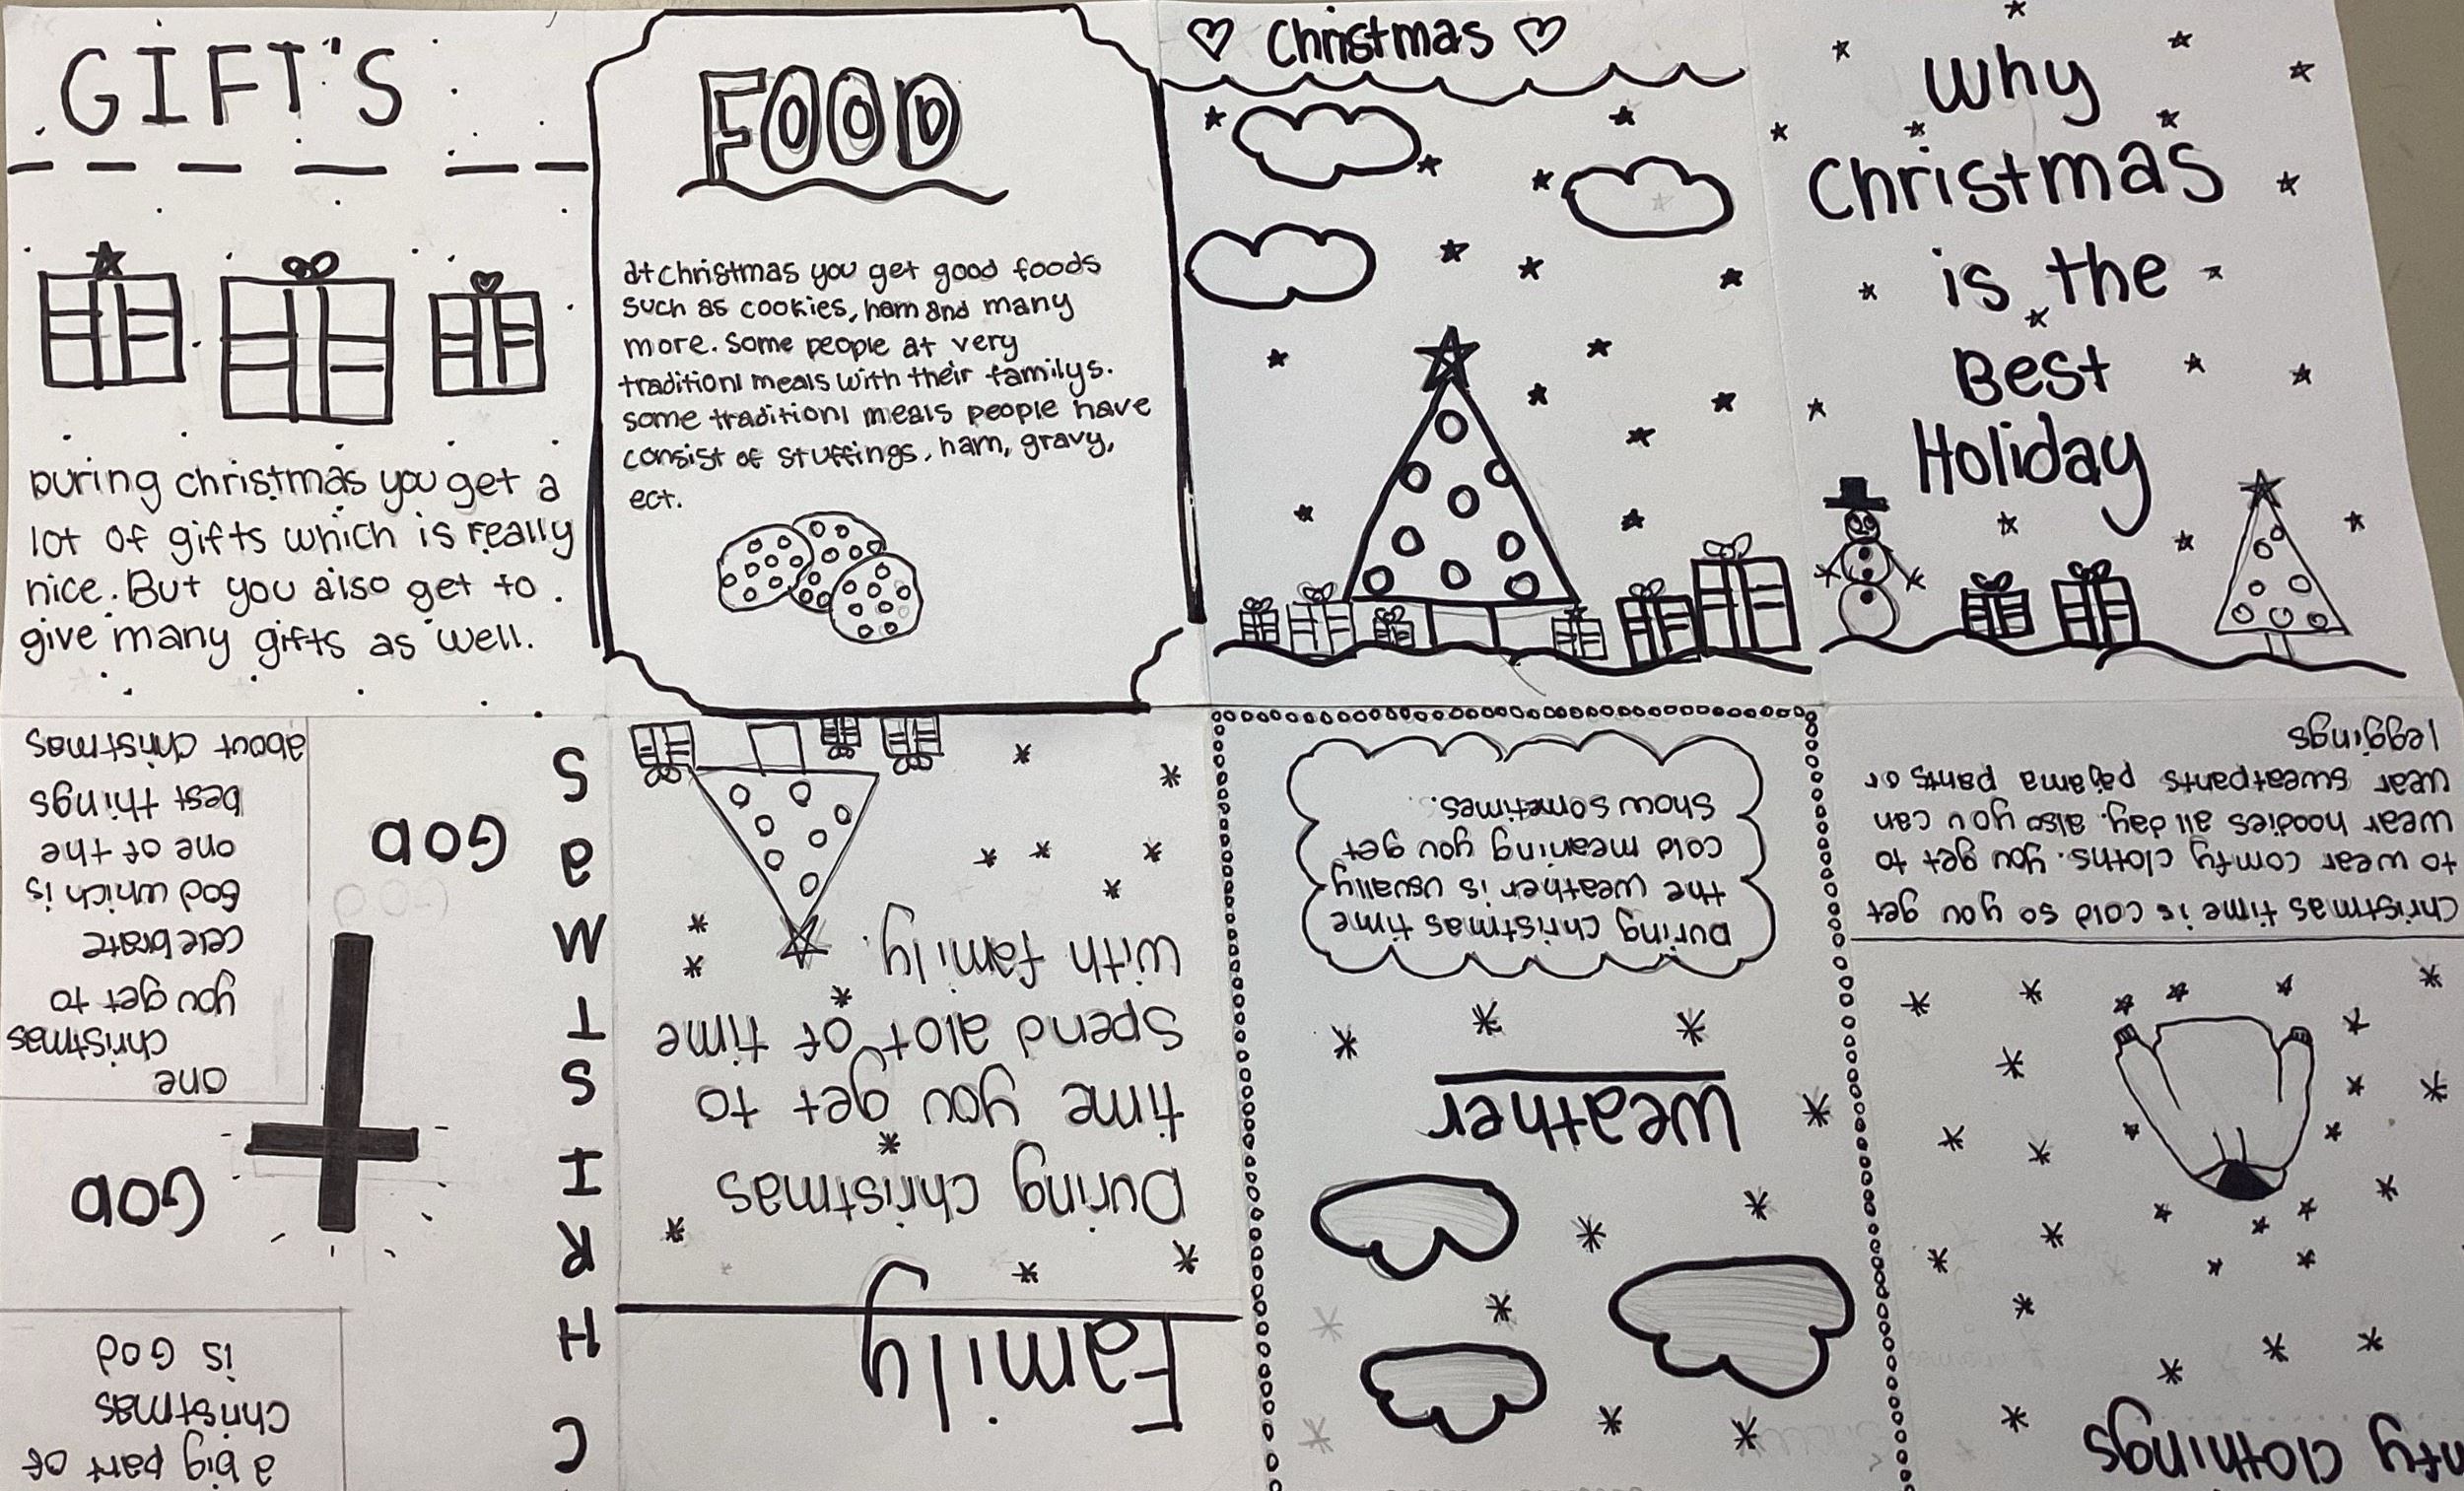 GIFT'S
During christmas you get a
lot of gifts which is really
nice. But you also get to
give many gifts as well.
FOOD
at christmas you get good foods
such as cookies, ham and many
more. some people at very
traditionl meals with their familys.
some traditionl meals people have
consist of stuffings, ham, gravy,
ect.
Christmas
Why
Christmas
is the
Best
Holiday
clothings
christmas time is cold so you get
to wear comfy cloths. you get to
wear hoodies all day. also you can
wear sweatpants pajama pants or
leggings
Weather
During christmas time
the weather is usually
cold meaning you get
show sometimes.
Family
During christmas
time you get to
Spend alot of time
with family.
C
H
R
I
S
T
M
a
S
a big part of
Christmas
is God
GOD
GOD
one
christmas
you get to
celebrate
God which is
one of the
best things
about christmas